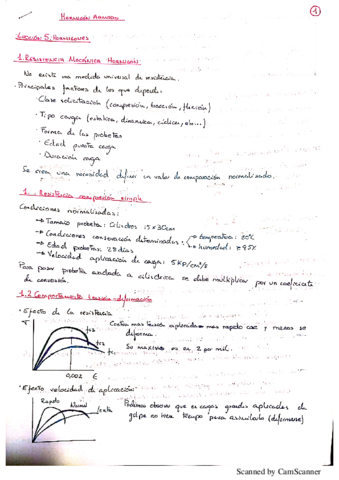 ①
HORMIGÓN ARMADO
LECCIÓN 5: HORMIGONES
1. RESISTENCIA MECÁNICA HORMIGÓN
No existe una medida universal de resistencia.
· Principales factores de los que depende:
· Clase solicitación (compresión, tracción, flexión)
· Tipo carga (estática, dinámica, cíclica, etc...)
· Forma de las probetas
· Edad puesta carga
· Duración carga
Se crea una necesidad definir un valor de comparación normalizado.
1.1 Resistencia compresión simple
Condiciones normalizadas:
→ Tamaño probeta: Cilindros 15x30cm
→ Condiciones conservación determinadas: → temperatura: 20%
→ humedad: ≥95%
→ Edad probetas: 28 días
→ Velocidad aplicación de carga: 5 KP/cm²/s
Para pasar probeta a cilíndrica se debe multiplicar por un coeficiente
de conversión.
1.2 Comportamiento tensión-deformación
· Efecto de la resistencia
Cuanta mas tensión aplicada mas rapido cae y menos se
deforma.
Su maximo es en 2 por mil.
0,002 ε
· Efecto velocidad de aplicación
Rapido Normal Lenta
Podemos observar que en cargas grandes aplicadas de
golpe no tiene tiempo para asimilarlo (deformarse)
Scanned by CamScanner